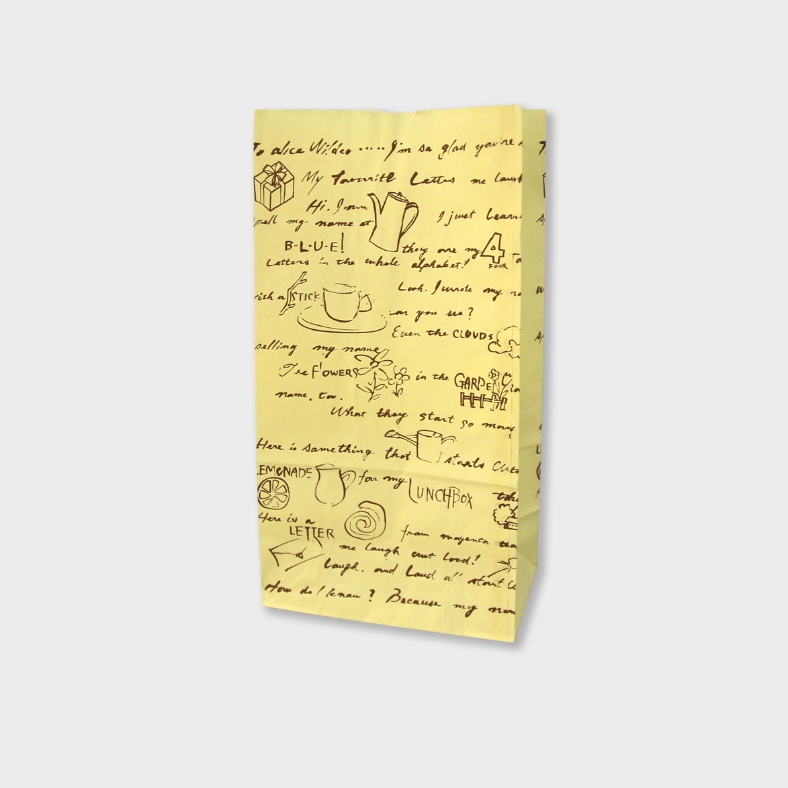 To alice Wilder ..... I'm so glad you're
My favorite Letters me laugh
Hi. I
spell my name at I just learn
B-L-U-E! they are my 4 FOUR
Letters in the whole alphabet!
with a STICK Look. I wrote my
can you see?
Even the CLOUDS
spelling my name
The FLOWERS in the GARDEN
name, too.
What they start so many
Here is something that starts
LEMONADE for my LUNCHBOX
Here is a LETTER from magenta
me laugh out loud!
Laugh. and Loud all start
How do I know? Because my